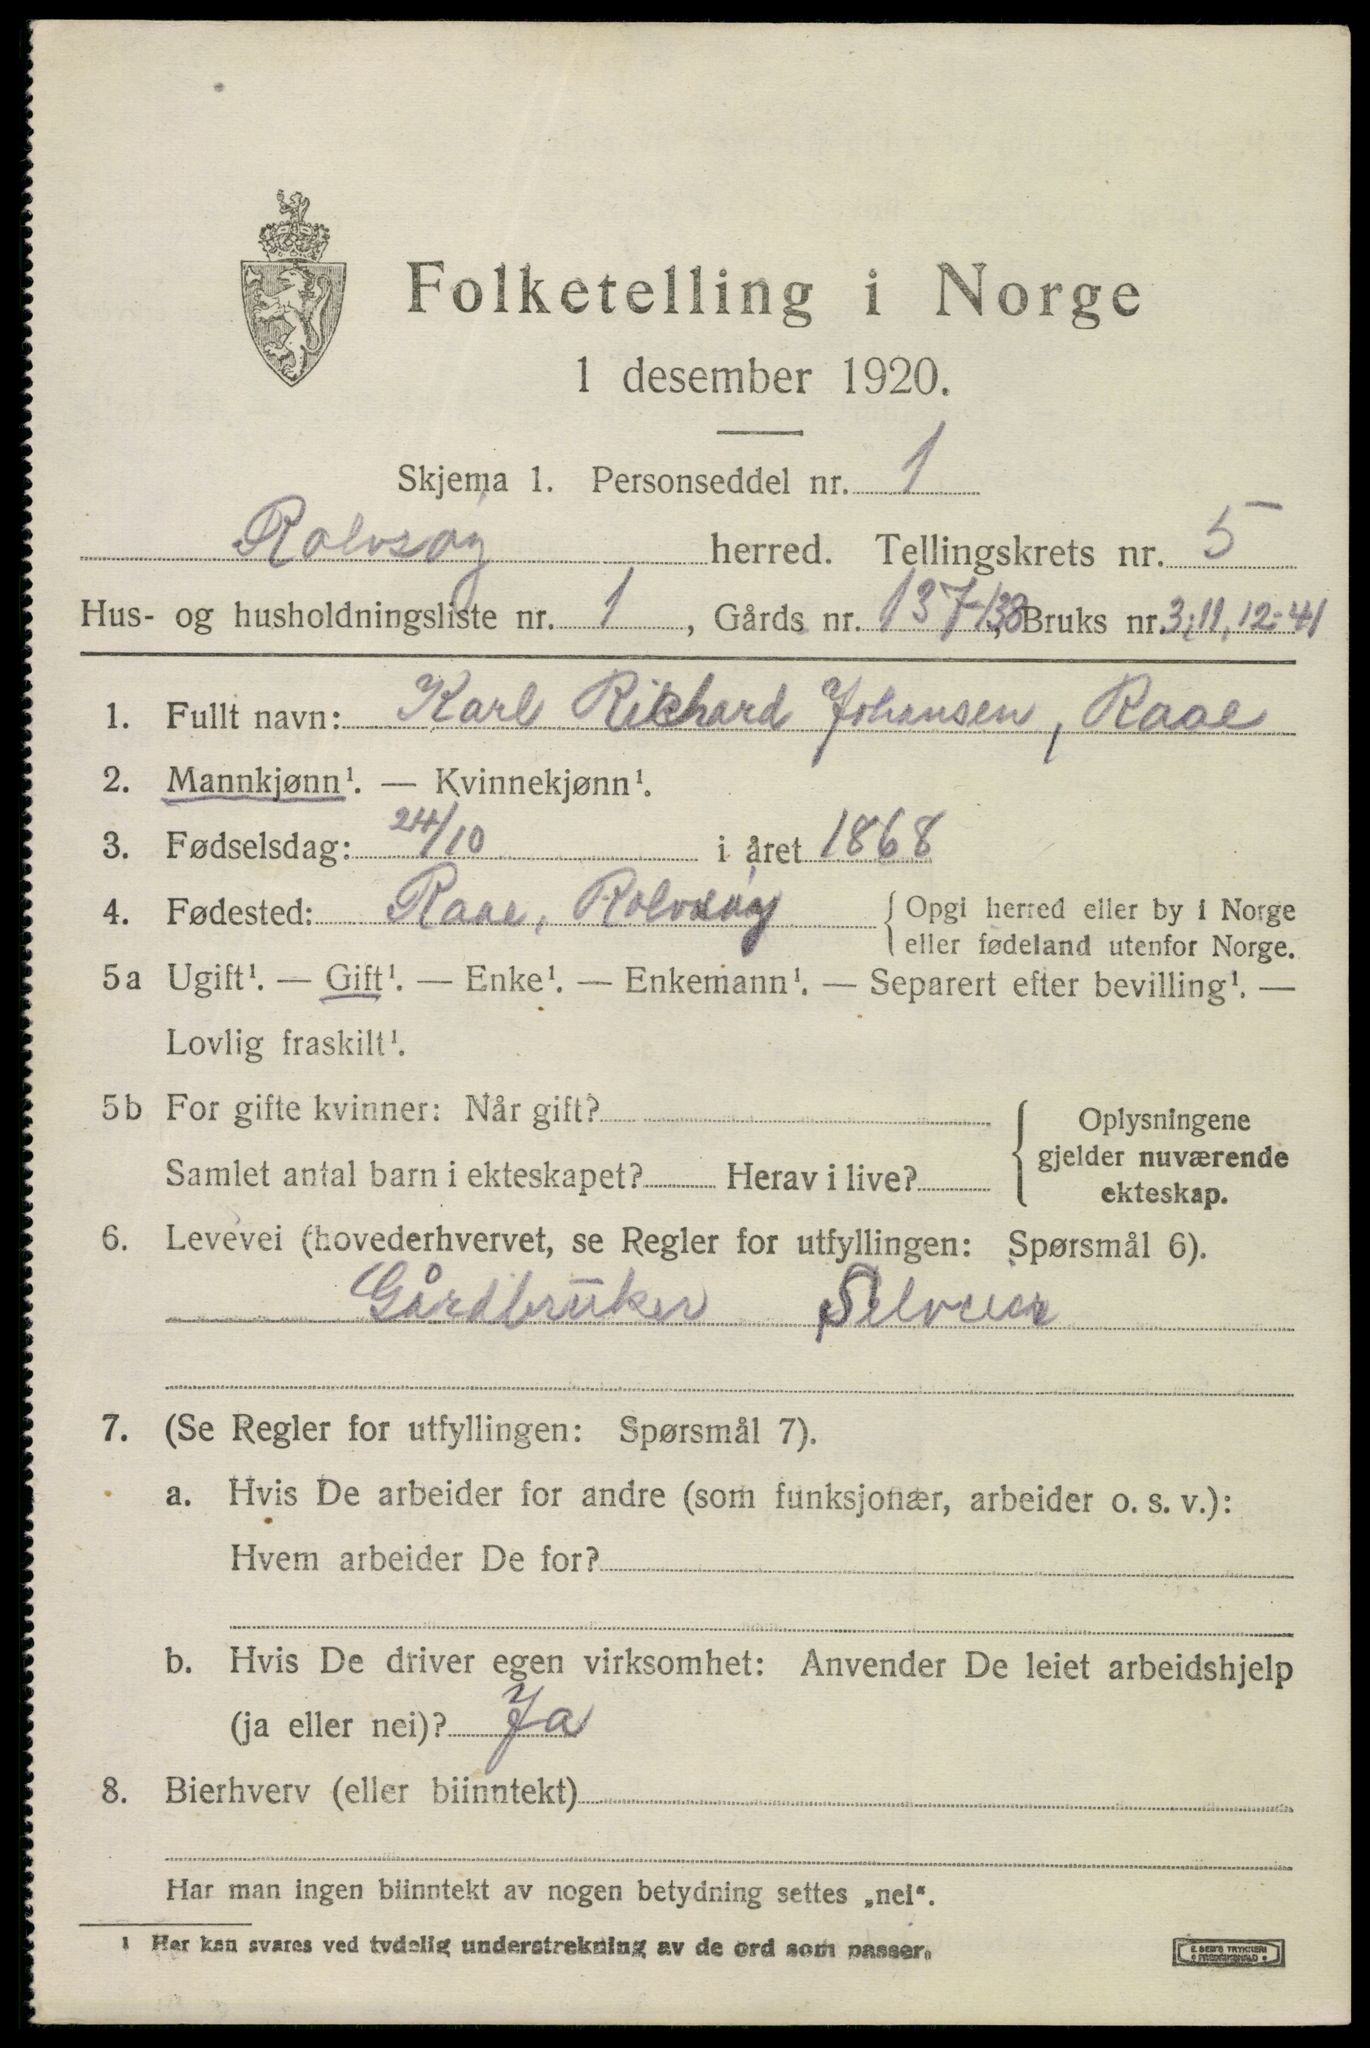 Folketelling i Norge
1 desember 1920.
Skjema 1. Personseddel nr. 1
Rolvsøy herred. Tellingskrets nr. 5
Hus- og husholdningsliste nr. 1, Gårds nr. 137-138, Bruks nr. 3,11,12-41
1. Fullt navn: Karl Richard Johansen, Raae
2. Mannkjønn¹. — Kvinnekjønn¹.
3. Fødselsdag: 24/10 i året 1868
4. Fødested: Raae, Rolvsøy { Opgi herred eller by i Norge
eller fødeland utenfor Norge.
5a Ugift¹. — Gift¹. — Enke¹. — Enkemann¹. — Separert efter bevilling¹. —
Lovlig fraskilt¹.
5b For gifte kvinner: Når gift? { Oplysningene
gjelder nuværende
Samlet antal barn i ekteskapet? Herav i live?
ekteskap.
6. Levevei (hovederhvervet, se Regler for utfyllingen: Spørsmål 6).
Gårdbruker Selveier
7. (Se Regler for utfyllingen: Spørsmål 7).
a. Hvis De arbeider for andre (som funksjonær, arbeider o. s. v.):
Hvem arbeider De for?
b. Hvis De driver egen virksomhet: Anvender De leiet arbeidshjelp
(ja eller nei)? Ja
8. Bierhverv (eller biinntekt)
Har man ingen biinntekt av nogen betydning settes „nei“.
1 Her kan svares ved tydelig understrekning av de ord som passer.
E. SEM'S TRYKKERI
FREDRIKSHALD